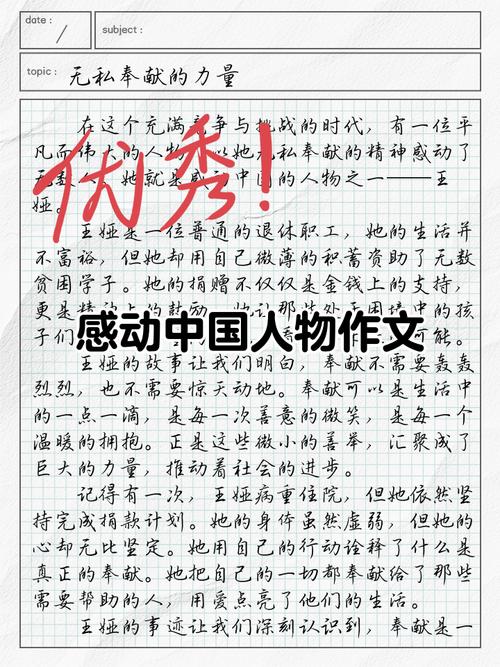 date:
subject:
topic: 无私奉献的力量
在这个充满竞争与挑战的时代，有一位平
凡而伟大的人物，以她无私奉献的精神感动了
无数人，她就是感动中国的人物之一——王
娅。
优秀!
王娅是一位普通的退休职工，她的生活并
不富裕，但她却用自己微薄的积蓄资助了无数
贫困学子。她的捐赠不仅仅是金钱上的支持，
更是精神上的鼓励，她让那些处于困境中的孩
子们 可能。
感动中国人物作文
王娅的故事让我们明白，奉献不需要轰轰
烈烈，也不需要惊天动地。奉献可以是生活中
的一点一滴，是每一次善意的微笑，是每一个
温暖的拥抱。正是这些微小的善举，汇聚成了
巨大的力量，推动着社会的进步。
记得有一次，王娅病重住院，但她依然坚
持完成捐款计划。她的身体虽然虚弱，但她的
心却无比坚定。她用自己的行动诠释了什么是
真正的奉献。她把自己的一切都奉献给了那些
需要帮助的人，用爱点亮了他们的生活。
王娅的事迹让我们深刻认识到，奉献是一